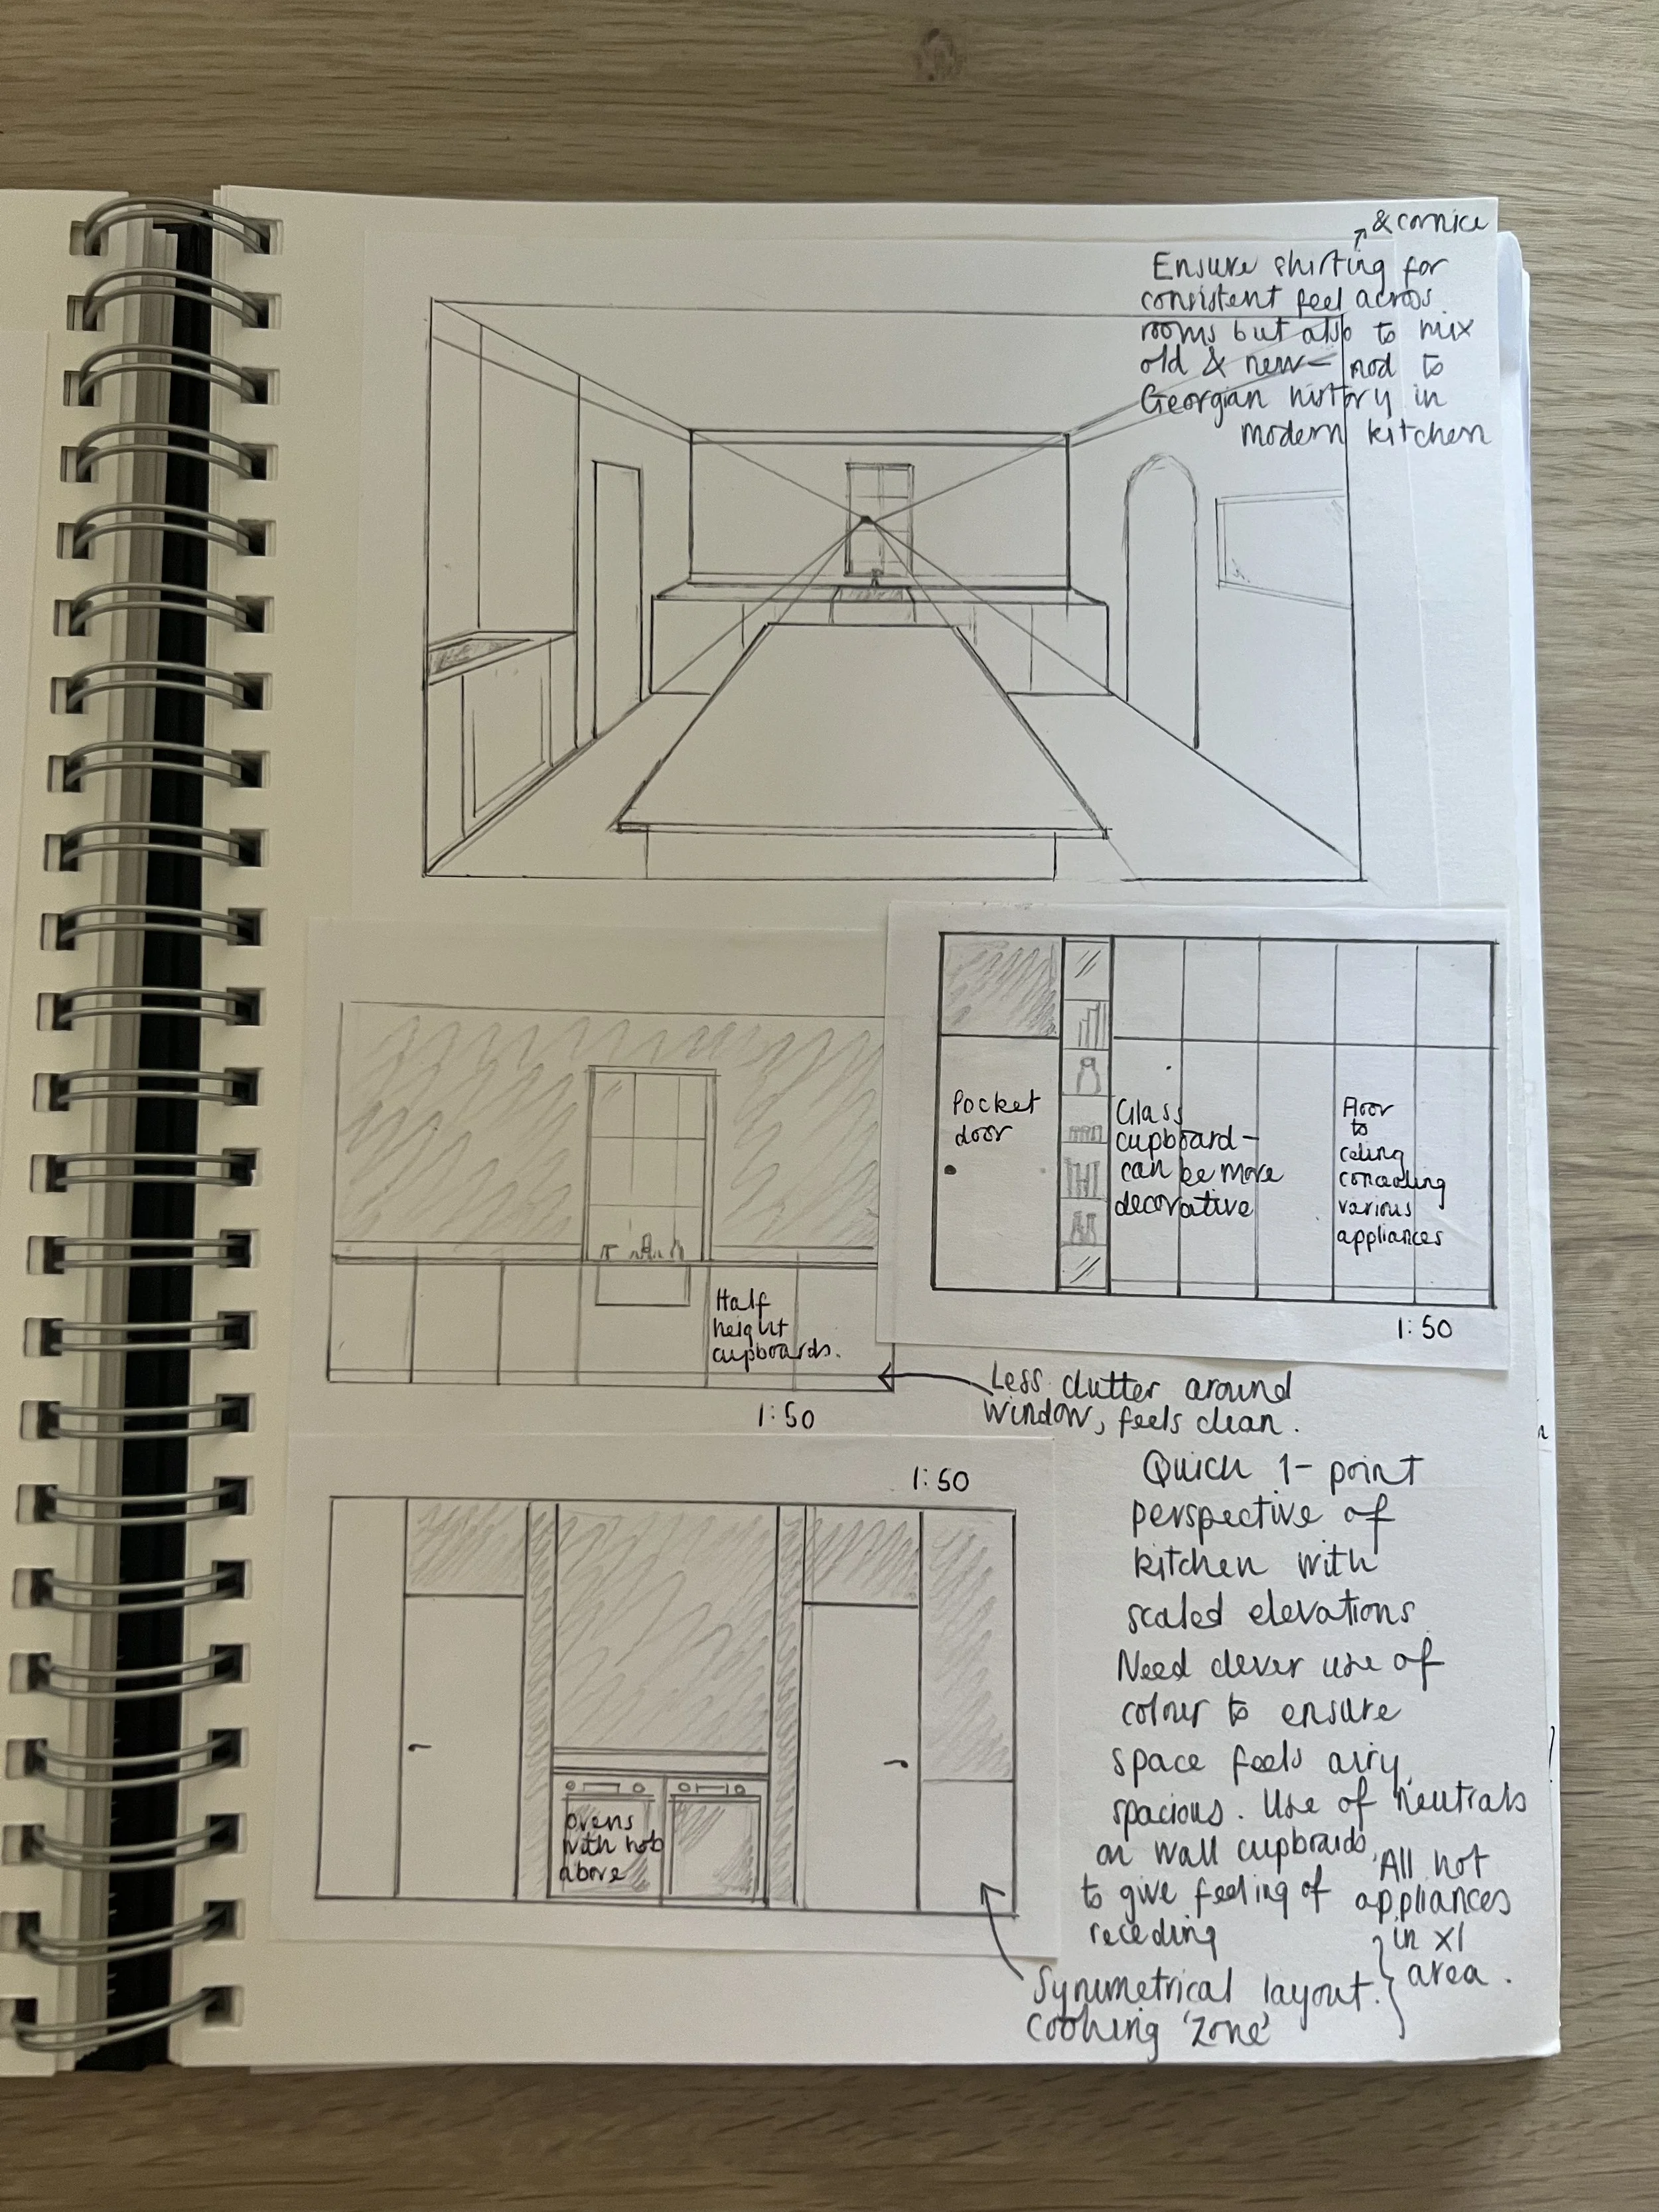 & cornice
Ensure skirting for
consistent feel across
rooms but also to mix
old & new – nod to
Georgian history in
modern kitchen
Pocket
door
Glass
cupboard –
can be more
decorative
Floor
to
celing
concealing
various
appliances
1:50
Half
height
cupboards.
1:50
Less clutter around
window, feels clean.
1:50
Quick 1-point
perspective of
kitchen with
scaled elevations
Need clever use of
colour to ensure
space feels airy,
spacious. Use of neutrals
on wall cupboards
to give feeling of
receding
ovens
with hob
above
All hot
appliances
in x1
area.
Symmetrical layout.
Cooking 'zone'